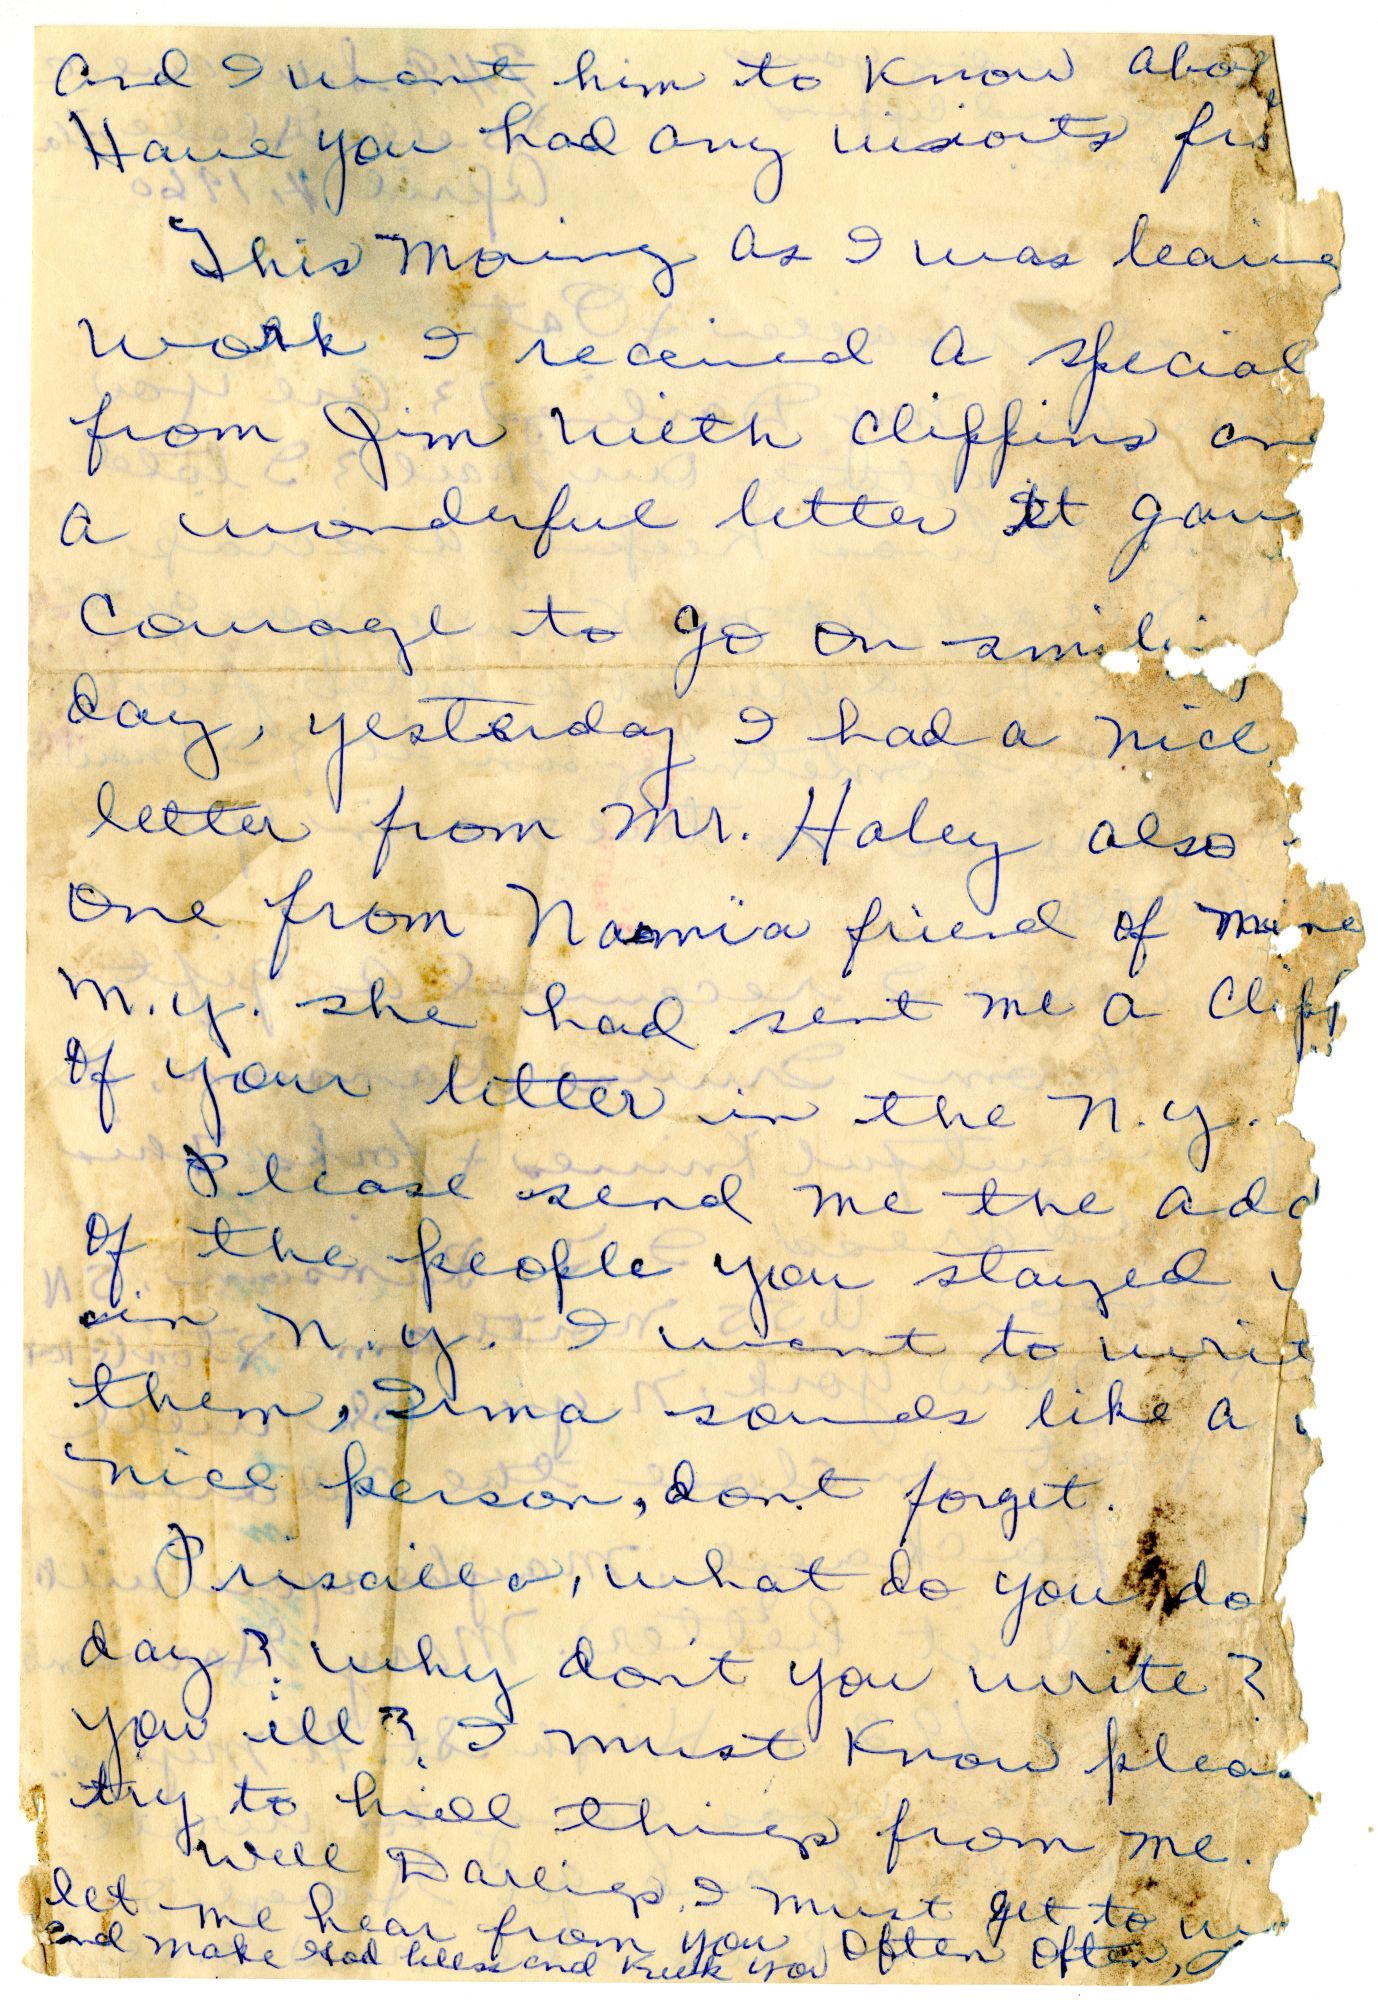 and I want him to know abou
Have you had any visiorts fro
This Moring as I was leaving
work I received a special
from Jim with clippins and
a wonderful letter It gave
courage to go on smiling
day, yesterday I had a nice
letter from Mr. Haley also
one from Naomia friend of mine
M.y. she had sent me a clipp
of your letter in the N.y.
Please send me the add
of the people you stayed w
in N.y. I want to write
them, Irma sounds like a
nice person, dont forget.
Priscilla, what do you do
day? why don't you write?
you ill? I must know plea
try to hide things from me.
Well Darlings, I must get to
let me hear from you often often,
and make God bless and keek you